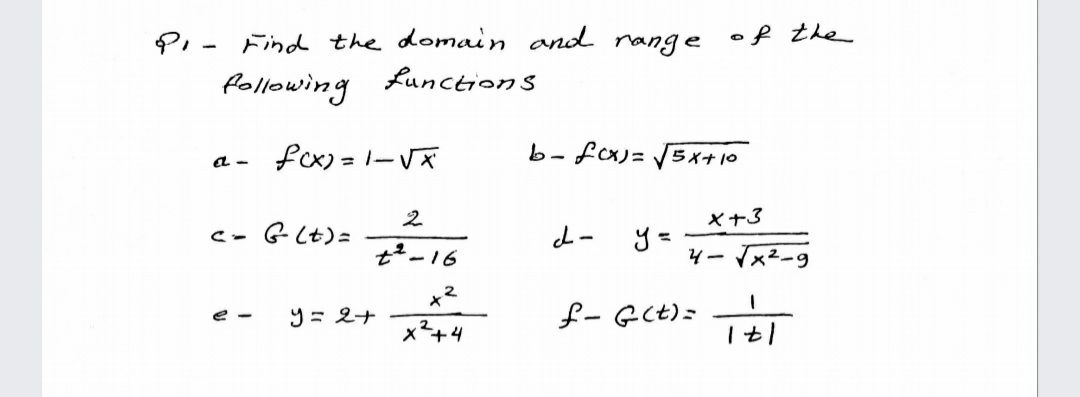 Q1 - Find the domain and range of the
following functions
a - f(x) = 1-√x b - f(x) = √5x+10
c - G(t) = 2/(t²-16) d - y = (x+3)/(4-√x²-9)
e - y = 2 + x²/(x²+4) f - G(t) = 1/|t|